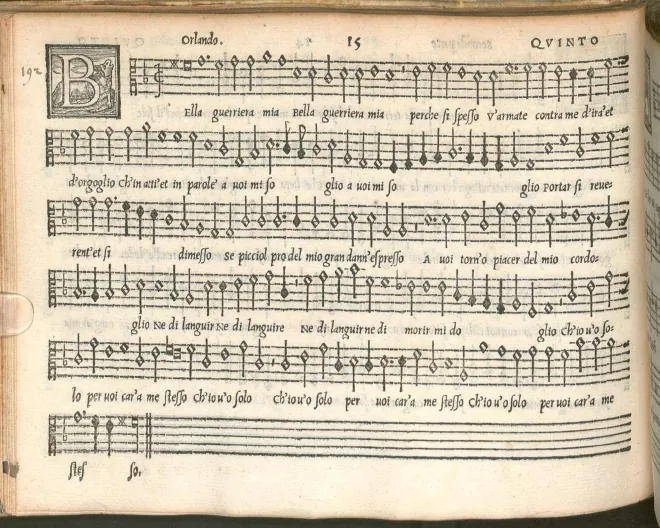 Orlando. 15 QVINTO
192
B Ella guerriera mia Bella guerriera mia perche si spesso V'armate contra me d'ira'et
d'orgoglio Ch'in atti'et in parole' a uoi mi so glio a uoi mi so glio Portar si reue-
rent'et si dimesso Se picciol pro del mio gran dann'espresso A uoi torn'o piacer del mio cordo-
glio Ne di languir Ne di languire Ne di languir ne di morir mi do glio Ch'io u'o so-
lo per uoi car'a me stesso Ch'io u'o solo Ch'io u'o solo per uoi car'a me stesso Ch'io u'o solo per uoi car'a me
stes so.